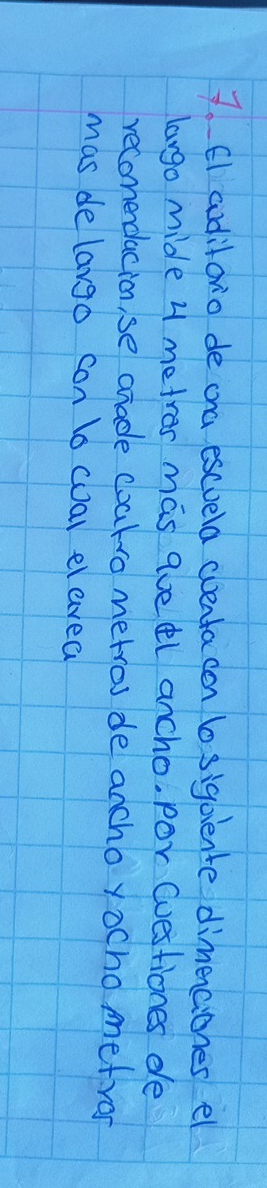 7.- El auditorio de una escuela cuenta con lo siguiente dimenciones el
largo mide 4 metros más que el ancho. Por cuestiones de
recomendacion, se añade cuatro metros de ancho y ocho metros
mas de largo con lo cual el area